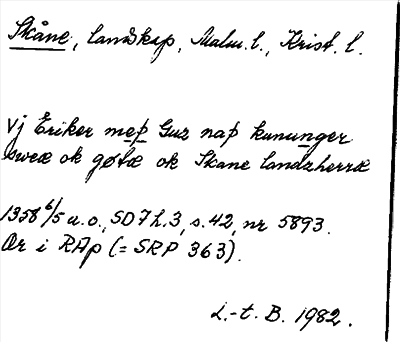 Skåne, landskap, Malm. l., Krist. l.
Vj Eriker meþ Guz naþ kununger
swеæ ok gøtæ ok Skane landzherræ
1358 6/5 u.o., SD 7 h.3, s.42, nr 5893.
Or i RAp (= SRP 363).
L.-t. B. 1982.